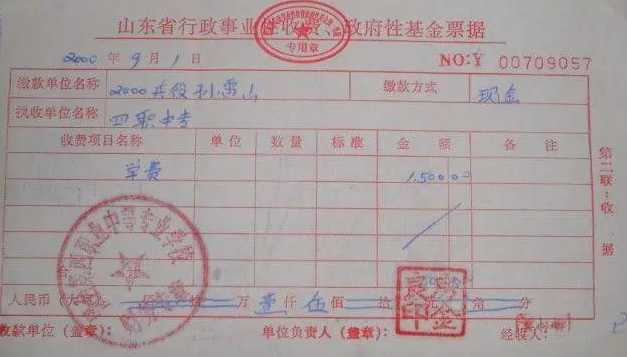 山东省行政事业性收费、政府性基金票据
专用章
2000年9月1日 NO:Y 00709057
缴款单位名称 2000 缴款方式 现金
执收单位名称 四职中专
收费项目名称 单位 数量 标准 金额 备注
学费 1500.00
第二联:收据
职业中等专业学校
人民币(大写) 万壹仟伍佰拾元角分
收款单位(盖章): 单位负责人(盖章): 经收人: